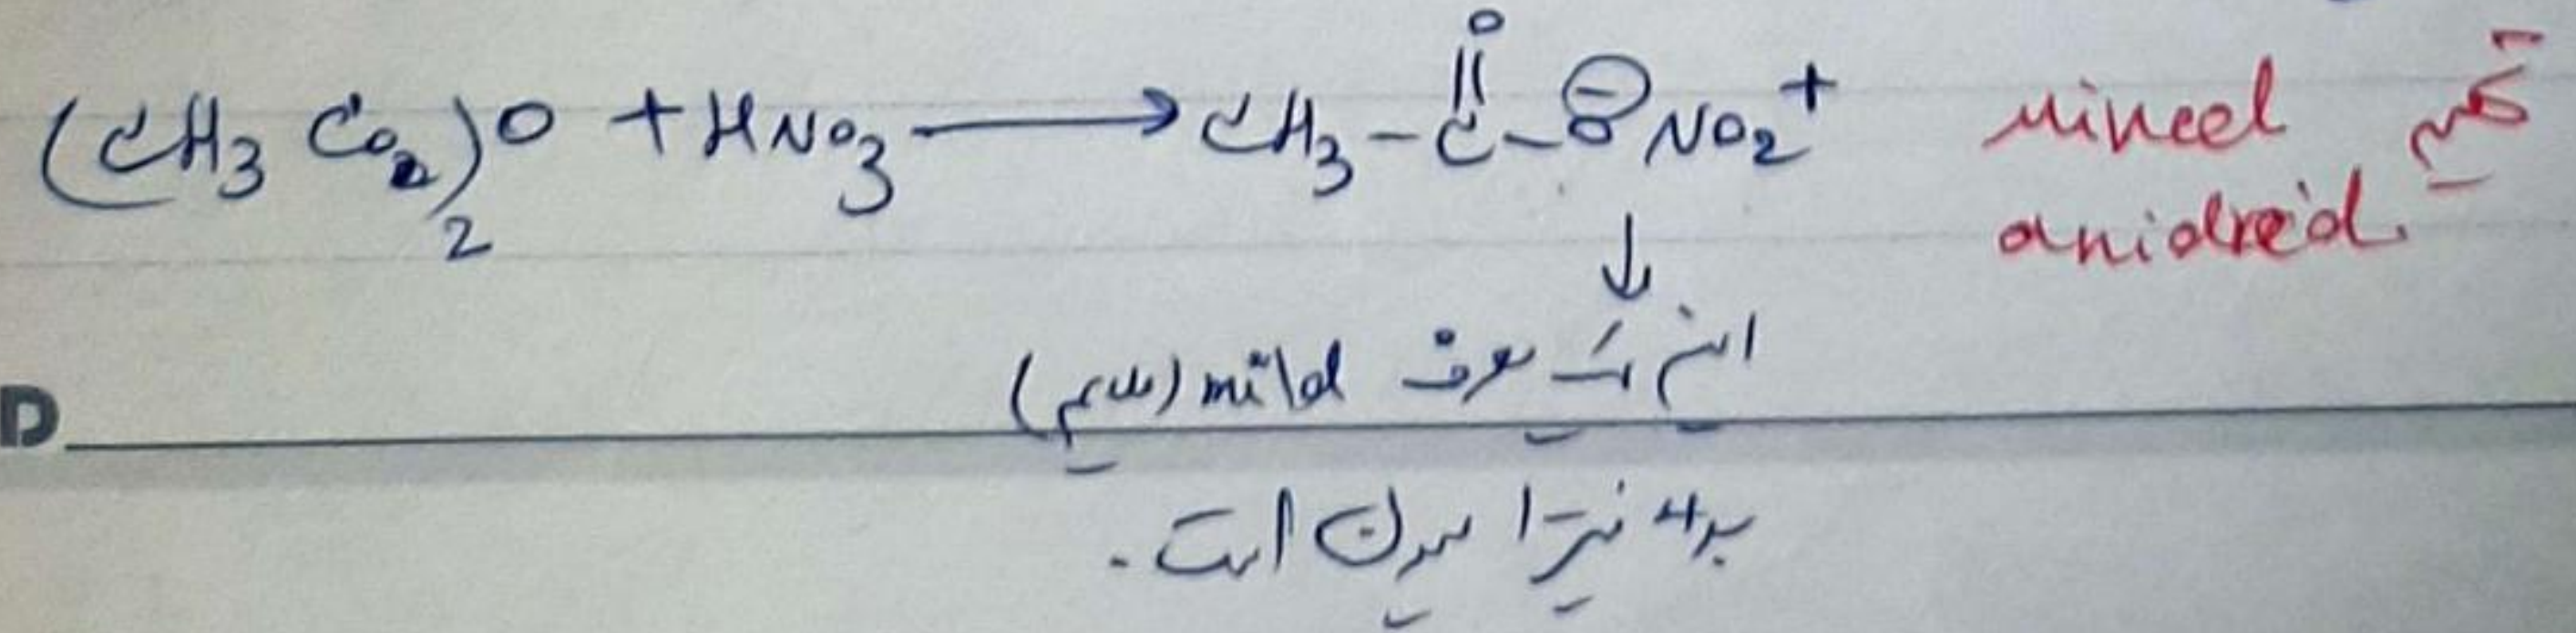 (CH3 CO2)2O + HNO3 → CH3-C(=O)-O⊖ NO2+
mixed
anidreid.
↓
این یک معرف mild (ملایم)
D
برای نیتراسیون است.